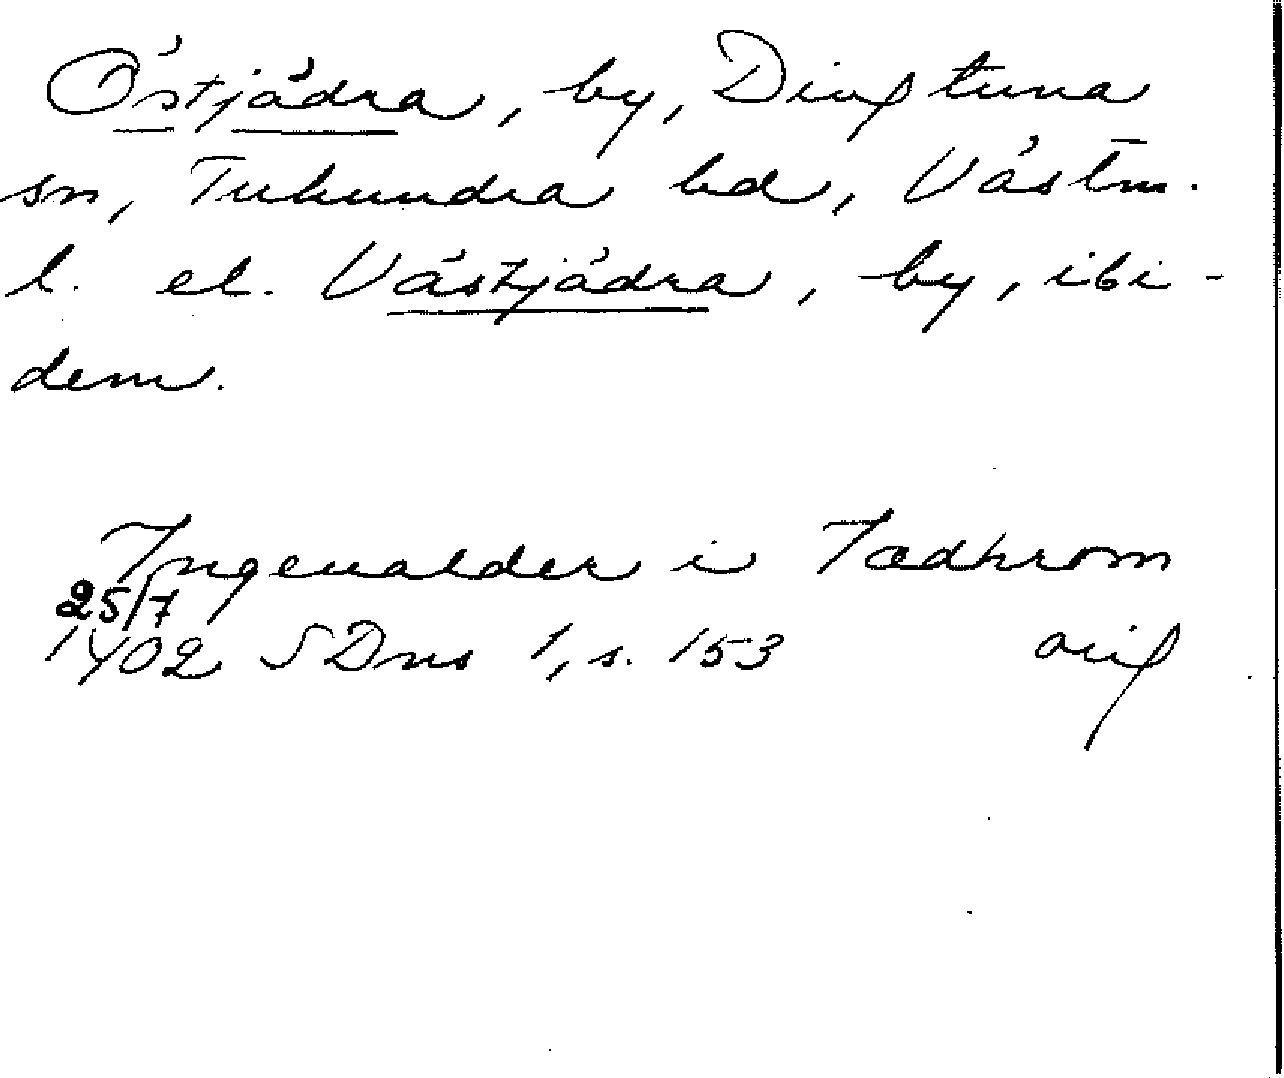 Östjädra, by, Dingtuna
sn, Tuhundra hd, Västm.
l. el. Västjädra, by, ibi-
dem.
Ingeualder i Jædhrom
25/7
1402 SDns 1, s. 153 orig